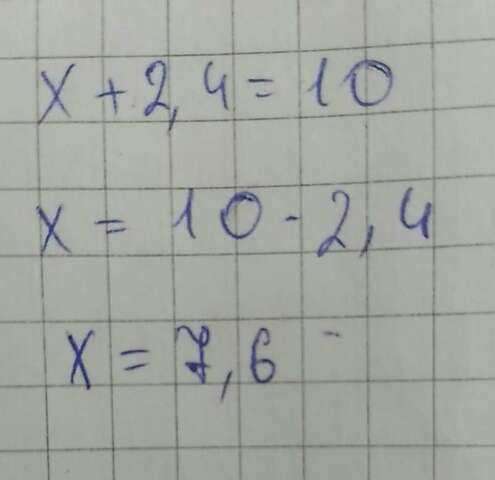 x + 2,4 = 10
x = 10 - 2,4
x = 7,6